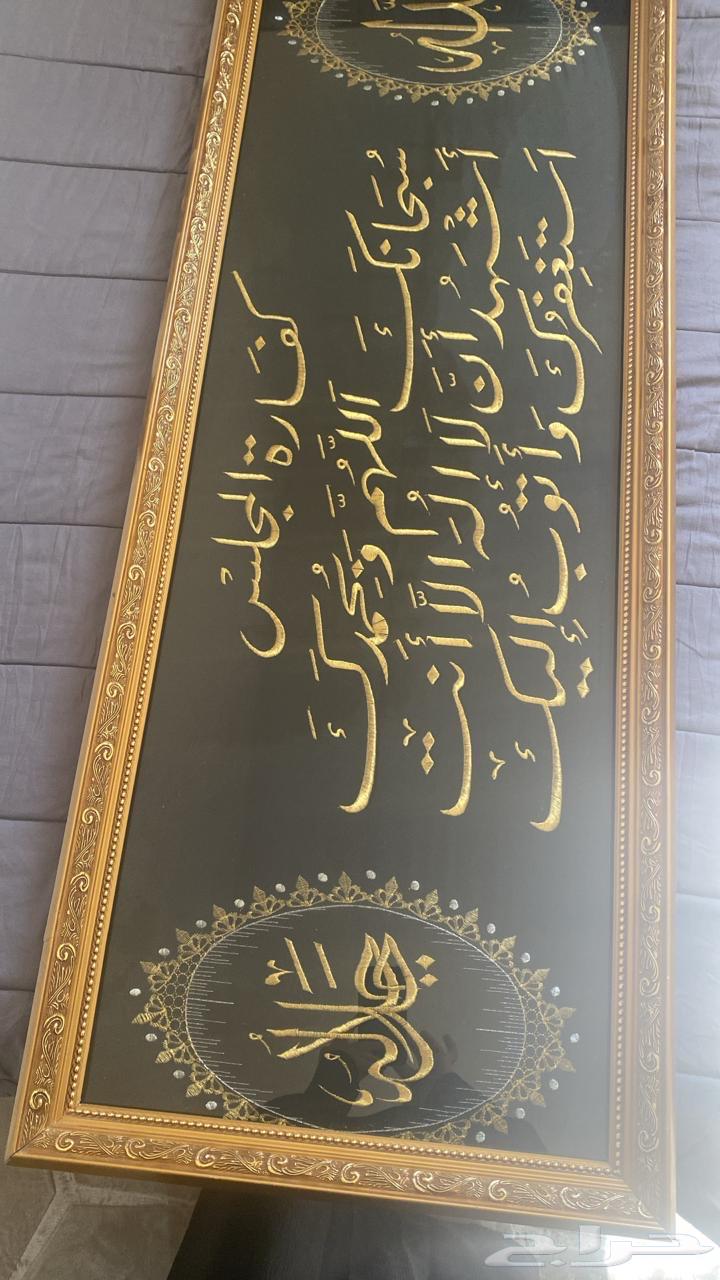 الله
كفارة المجلس
سُبحَانكَ اَللّٰهُمَّ وَبحَمْدُكَ
أَشْهَدُ أَنَّ لَا إلٰهَ الَّا أَنتَ
اَستَغفِرُكَ وَأَتُوبُ إِليكَ
جل جلاله
حراج